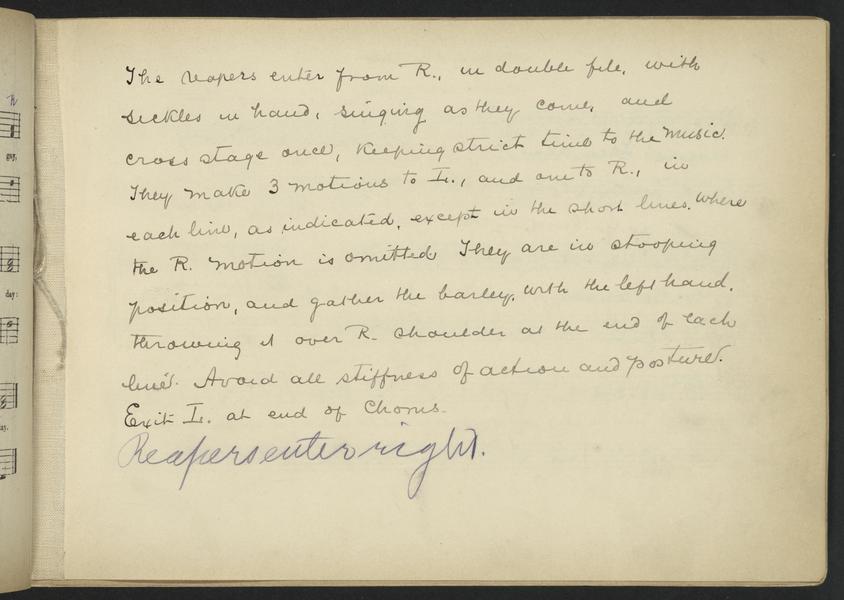 The reapers enter from R., in double file, with
sickles in hand, singing as they come, and
cross stage once, keeping strict time to the music.
They make 3 motions to L., and one to R., in
each line, as indicated, except in the short lines, where
the R. motion is omitted They are in stooping
position, and gather the barley, with the left hand,
throwing it over R. shoulder at the end of each
line. Avoid all stiffness of action and posture.
Exit L. at end of Chorus.
Reapers enter right.
day: